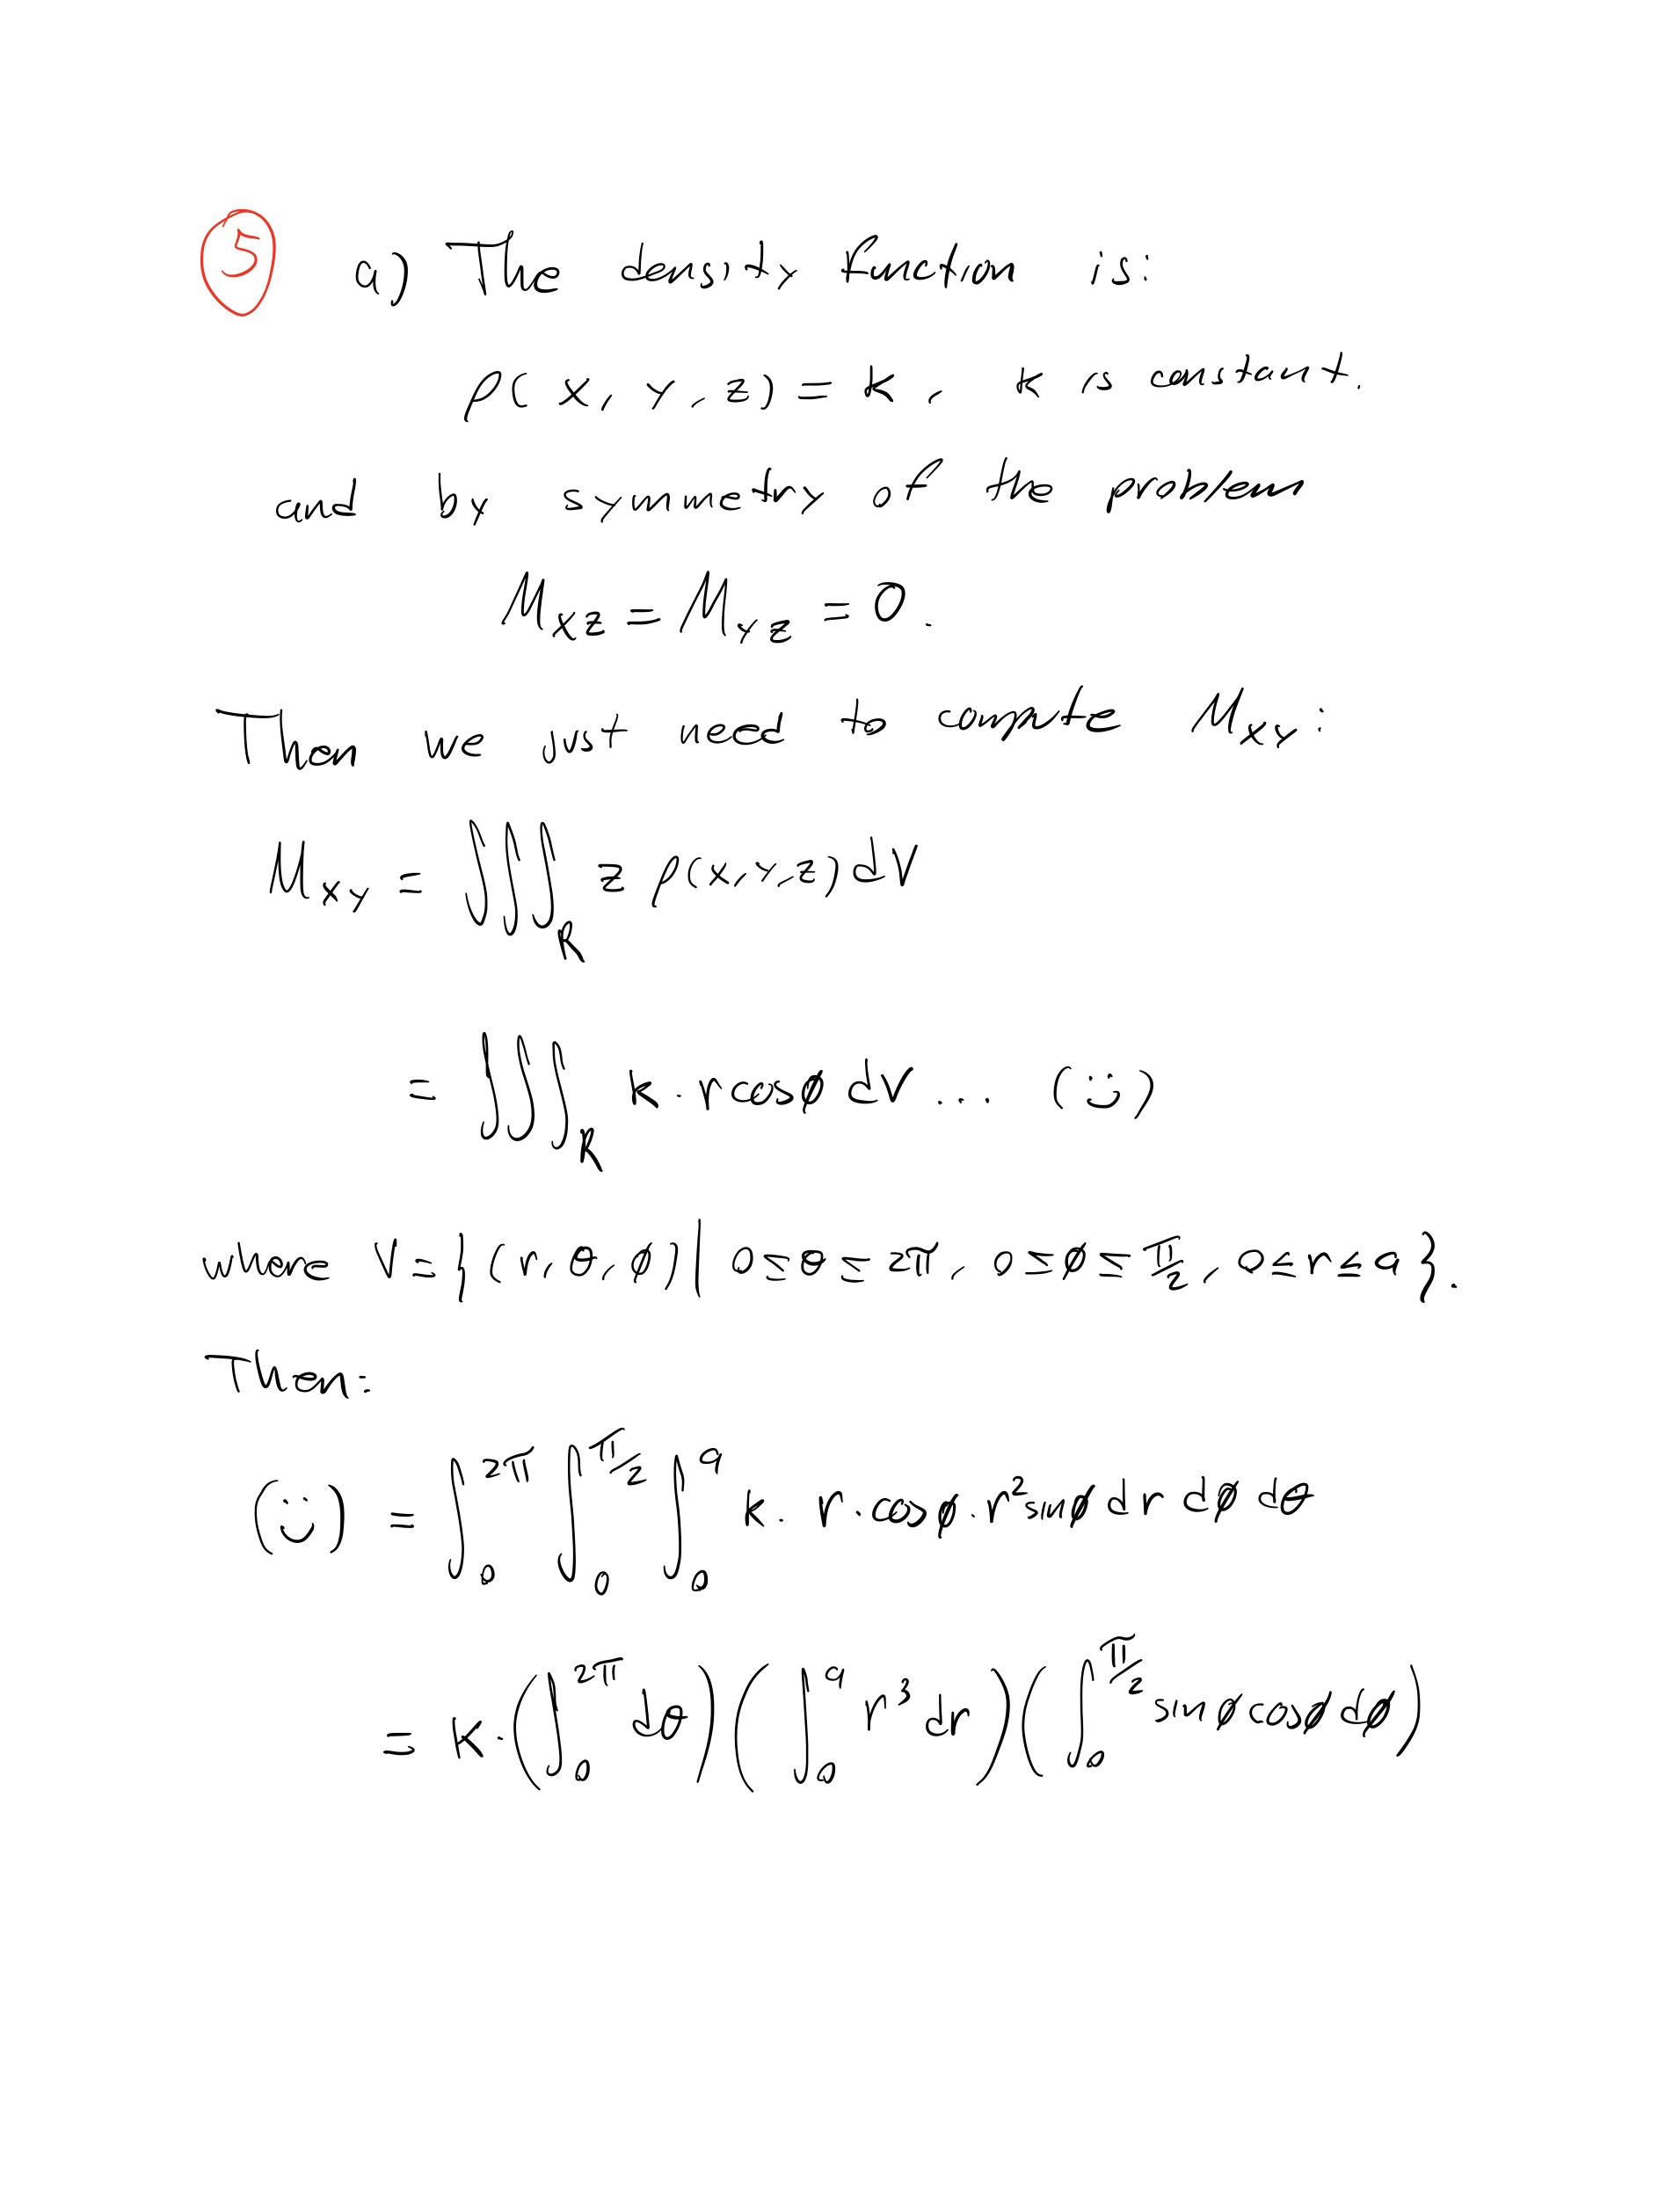 5 a) The density function is:
ρ(x, y, z) = k, k is constant.
and by symmetry of the problem
M_xz = M_yz = 0.
Then we just need to compute M_xy:
M_xy = ∭_R z ρ(x,y,z) dV
= ∭_R k · r cosφ dV ... (☺)
where V = {(r, θ, φ) | 0 ≤ θ ≤ 2π, 0 ≤ φ ≤ π/2, 0 ≤ r ≤ a}.
Then:
(☺) = ∫_0^{2π} ∫_0^{π/2} ∫_0^a k · r · cosφ · r² sinφ dr dφ dθ
= k · (∫_0^{2π} dθ) (∫_0^a r³ dr) (∫_0^{π/2} sinφ cosφ dφ)